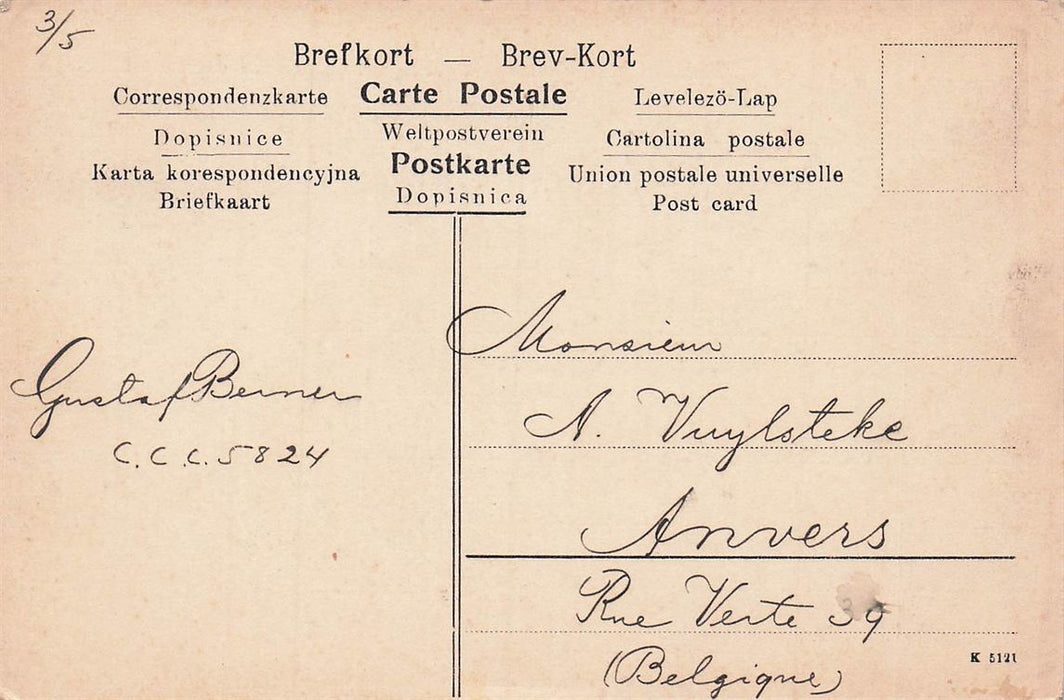 3/5
Brefkort — Brev-Kort
Correspondenzkarte Carte Postale Levelezö-Lap
Dopisnice Weltpostverein Cartolina postale
Karta korespondencyjna Postkarte Union postale universelle
Briefkaart Dopisnica Post card
Monsieur
Gustaf Berner
A. Vuylsteke
C.C.C. 5824
Anvers
Rue Verte 39
(Belgique)
K 5121